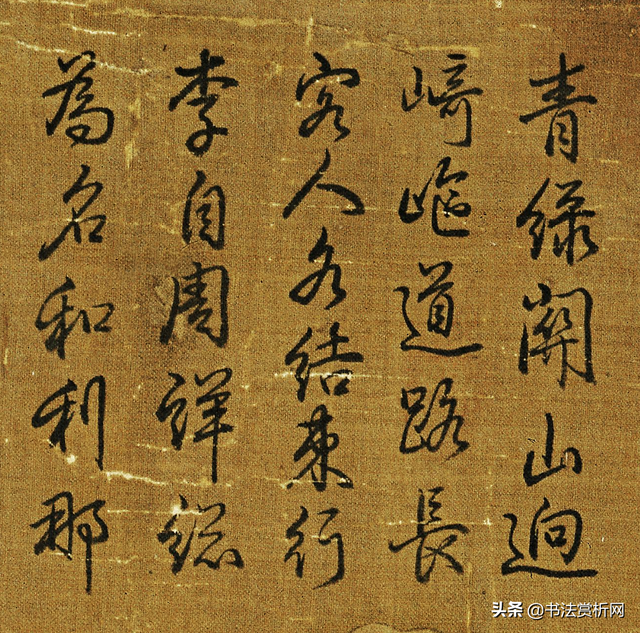 青綠關山迥
崎嶇道路長
客人各結束行
李自周詳總
為名和利那
头条 @书法赏析网